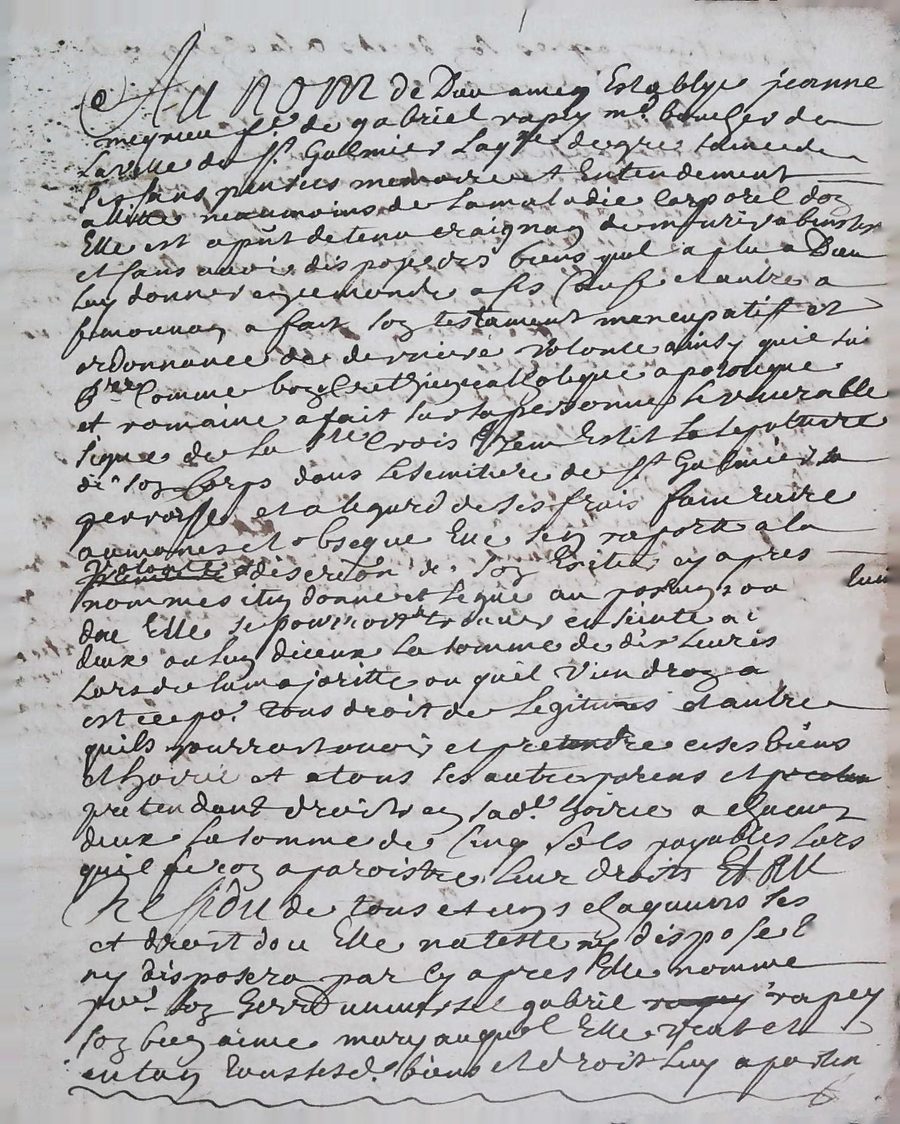 Au nom de Dieu amen Establye jeanne
meyrieu fe. de gabriel rapey md. boucher de
La ville de St. Galmier Laqlle de gre sciance de
ses sans pensees memoire et Entendement
allitee neaumoins de La maladie Corporel don
Elle est a pnt detenu craignan de mourir abintestat
et sans avoir dispose des biens quil a plu a Dieu
luy donner en ce monde a ses Cause et autre a
se mouvan a fait son testament noncupatiff et
ordonnance de derniere volonte ainsy quie sui
Comme bonne Crethienne catholique apostolique
et romaine a fait sur sa personne le venerable
signe de La Ste Crois Item Eslit La sepulture
de son Corps dans Le semitiere de St. Galmier sa
perroisse et a legard de ses frais funeraire
aumones et obseque Elle sen raporte a la
volonte discretion de son heritier cy apres
nommes Item donne et Legue au postume ou
don Elle se pourroit trouver enseinte a
deux ou luy diceux La somme de dix Livres
Lors de la majoritte ou quil viendron a
est ce po. tous droit de Legitimes et autre
quils pourroit avoir et pretendre en ses biens
et hoirie et a tous les autre parens et
pretendant droits en sad. hoirie a chacun
deux La somme de Cinq sols payables Lors
quil feron aparoistre leur droits Et AU
Residu de tous et uns chaquuns ses
et droit dou Elle na teste ny dispose
ny disposera par cy apres Elle nomme
pour son herr universel gabriel rapey
son bien aime mary auquel Elle veut et
entan tous sesd. biens et droit luy aparten